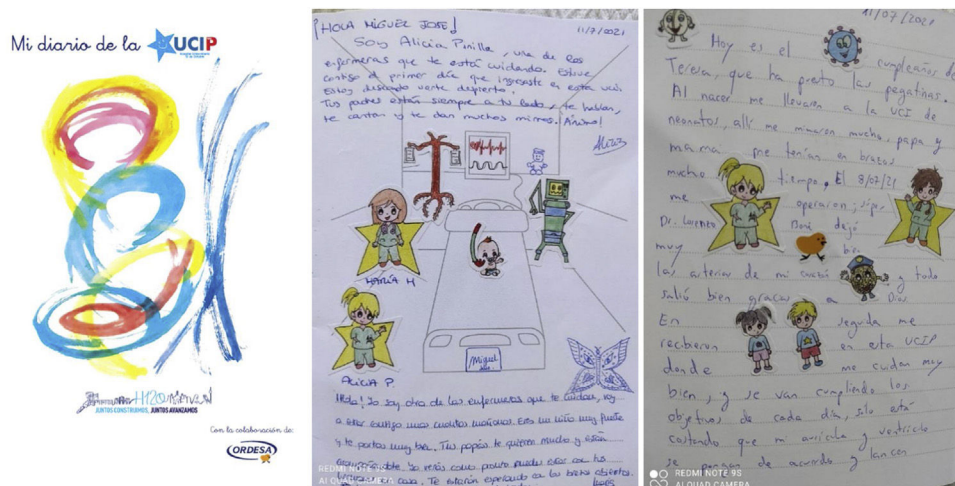 Mi diario de la UCIP
H12O
JUNTOS CONSTRUIMOS, JUNTOS AVANZAMOS
Con la colaboración de:
ORDESA
¡HOLA MIGUEL JOSE! 11/7/2021
Soy Alicia Pinilla, una de las
enfermeras que te está cuidando. Estuve
contigo el primer día que ingresaste en esta UCI.
Estoy deseando verte despierto!
Tus padres están siempre a tu lado, te hablan,
te cantan y te dan muchos mimos. Ánimo!
Alicia
MARÍA M
ALICIA P.
Miguel
José
Hola! Yo soy otra de las enfermeras que te cuidan, voy
a estar contigo unas cuantas mañanas. Eres un niño muy fuerte
y te portas muy bien. Tus papás te quieren mucho y están
Ya verás como pronto puedes estar con tus
en casa. Te estarán esperando con los brazos abiertos.
REDMI NOTE 9S
AI QUAD CAMERA
11/07/2021
Hoy es el cumpleaños de
Teresa, que ha puesto las pegatinas.
Al nacer me llevaron a la UCI de
neonatos, allí me mimaron mucho, papa y
mama me tenían en brazos
mucho tiempo. El 8/07/21
me operaron,
Dr. Lorenzo Boni dejó
muy bien
las arterias de mi y todo
salió bien gracias a Dios
En seguida me
recibieron en esta UCIP
donde me cuidan muy
bien, y se van cumpliendo los
objetivos de cada día, sólo está
costando que mi aurícula y ventrículo
se pongan de acuerdo y lancen
REDMI NOTE 9S
AI QUAD CAMERA